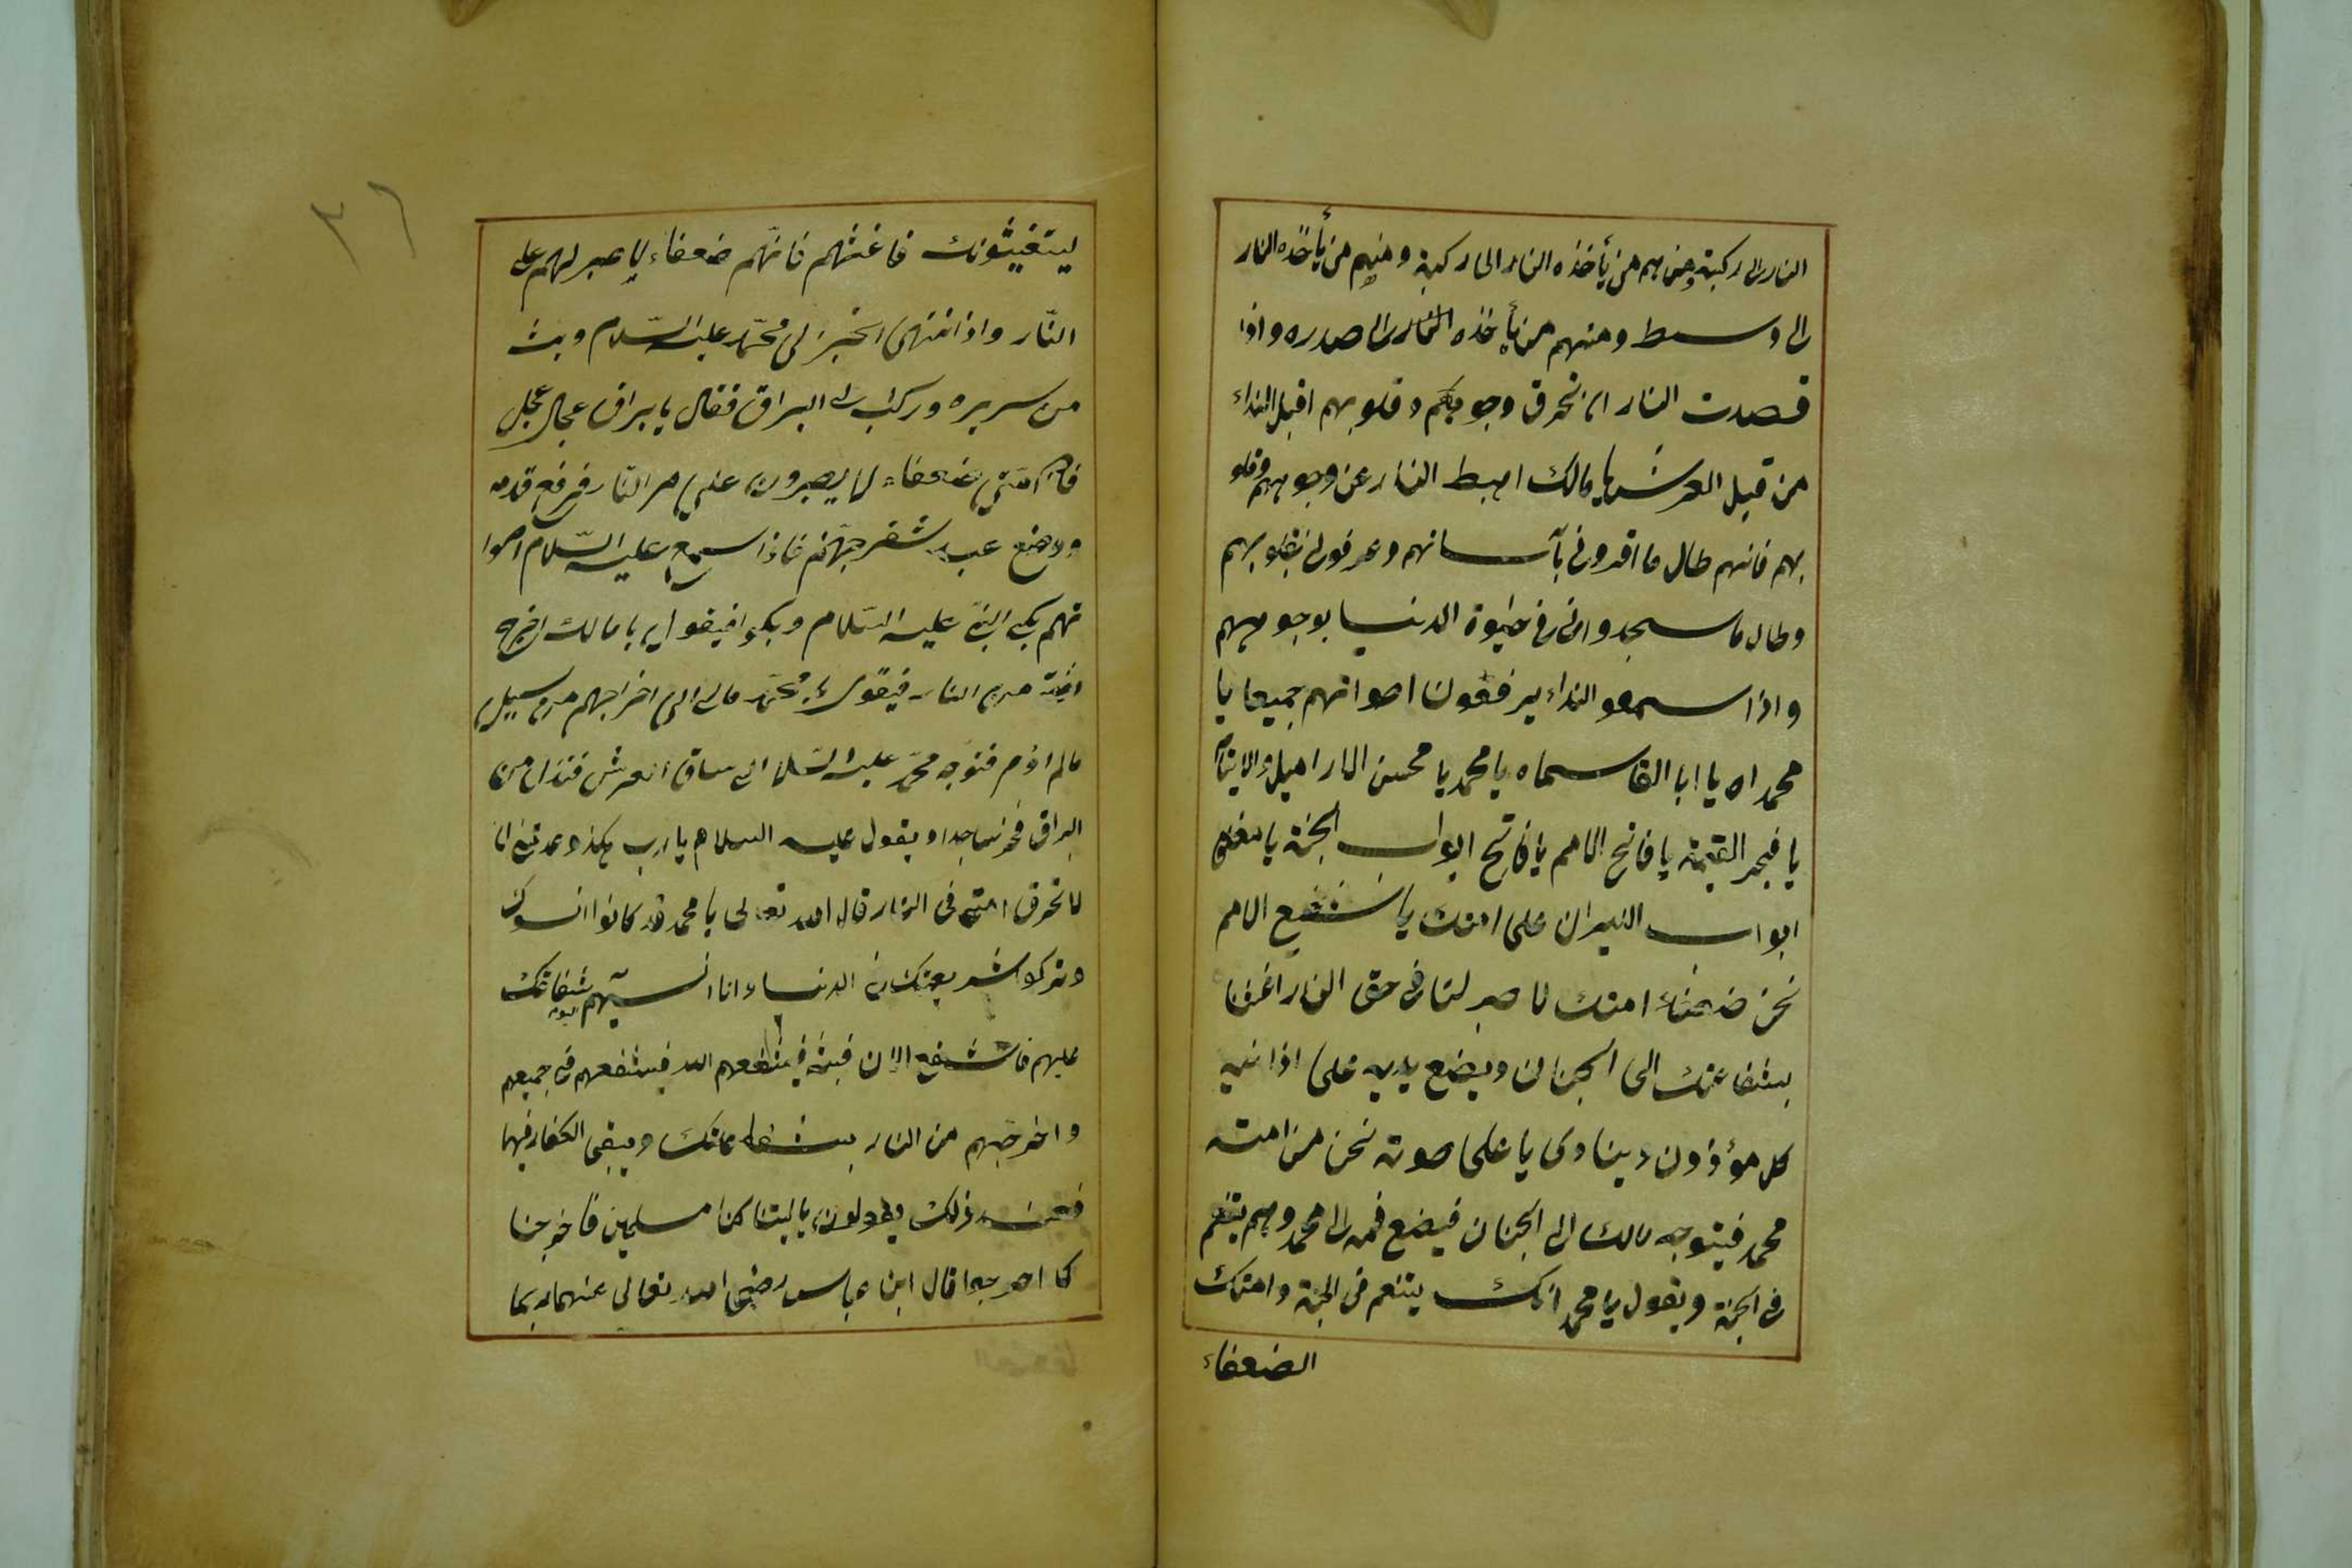 النار الى ركبته ومنهم من يأخذه النار الى ركبته ومنهم من يأخذه النار
الى وسط ومنهم من يأخذه النار الى صدره واذا
قصدت النار ان تحرق وجوهكم وقلوبهم اقبل النداء
من قبل العرش يا مالك اهبط النار عن وجوههم وقلو
بهم فانهم طال ما اقرونى بآسانهم وعرفونى بقلوبهم
وطال ما سجدوا لى فى حيوة الدنيا بوجوههم
واذا سمعو النداء يرفعون اصواتهم جميعا يا
محمداه يا ابا القاسماه يا محمد يا محسن الاراميل والايتام
يا فيجر القيمة يا فاتح الامم يا فاتح ابواب الجنة يا مغلق
ابواب النيران على امتك يا شفيع الامم
نحن ضعفاء امتك لا صبر لنا فى حق النار اغثنا
بشفاعتك الى الجنان ويضع يديه على اذانيه
كل مؤذون وينادى يا على صوته نحن من امته
محمد فيتوجه مالك الى الجنان فيضع فمه الى محمد وهم يتنعم
فى الجنة ويقول يا محمد انك يتنعم فى الجنة وامتك
الضعفاء
٣٦
ليتغيثونك فاغثهم فانهم ضعفاء لا صبر لهم على
النّار واذا انتهى الخبر الى محمّد عليه السّلام وبث
من سريره وركب الى البراق فقال يا براق عجل عجل
فان امتي ضعفاء لا يصبرون على حر النّار فرفع قدمه
ووضع عند شفر جهنّم فاذا سمع عليه السّلام اصوا
تهم بكى النبيّ عليه السّلام وبكوا فيقول يا مالك اخرج
امّته من النار فيقول محمّد مالى الى اخراجهم من سبيل
مالم اؤمر فتوجه محمّد عليه السّلام الى ساق العرش فنزل من
البراق فخر ساجدا ويقول عليه السلام يا رب هكذا وعدتنى ان
لا تحرق امتى فى النار قال الله تعالى يا محمد قد كانوا انسوك
وتركوا شريعتك فى الدنيا وانا انسيتهم شفاعتك اليوم
عليهم فاشفع الان فيشفعهم الله فيشفعهم فى جميعهم
واخرجهم من النار بشفاعتك ويبقى الكفار فيها
فعند ذلك يقولون يا ليتنا كنا مسلمين فاخرجنا
كا اخرجها قال ابن عباس رضى الله تعالى عنهما ربما